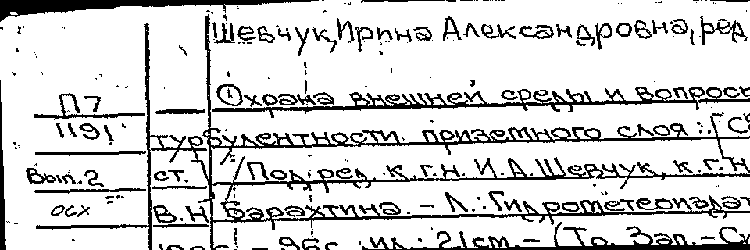 Шевчук, Ирина Александровна, ред
Охрана внешней среды и вопросы
П7
1191
турбулентности приземного слоя: [С
Вып. 2
ст. / Под ред. к.г.н. И.А. Шевчук, к.г.н.
осх
В.Н. Барахтина. - Л.: Гидрометеоиздат
- 96с. : ил.; 21см. - (Тр. Зап.-С